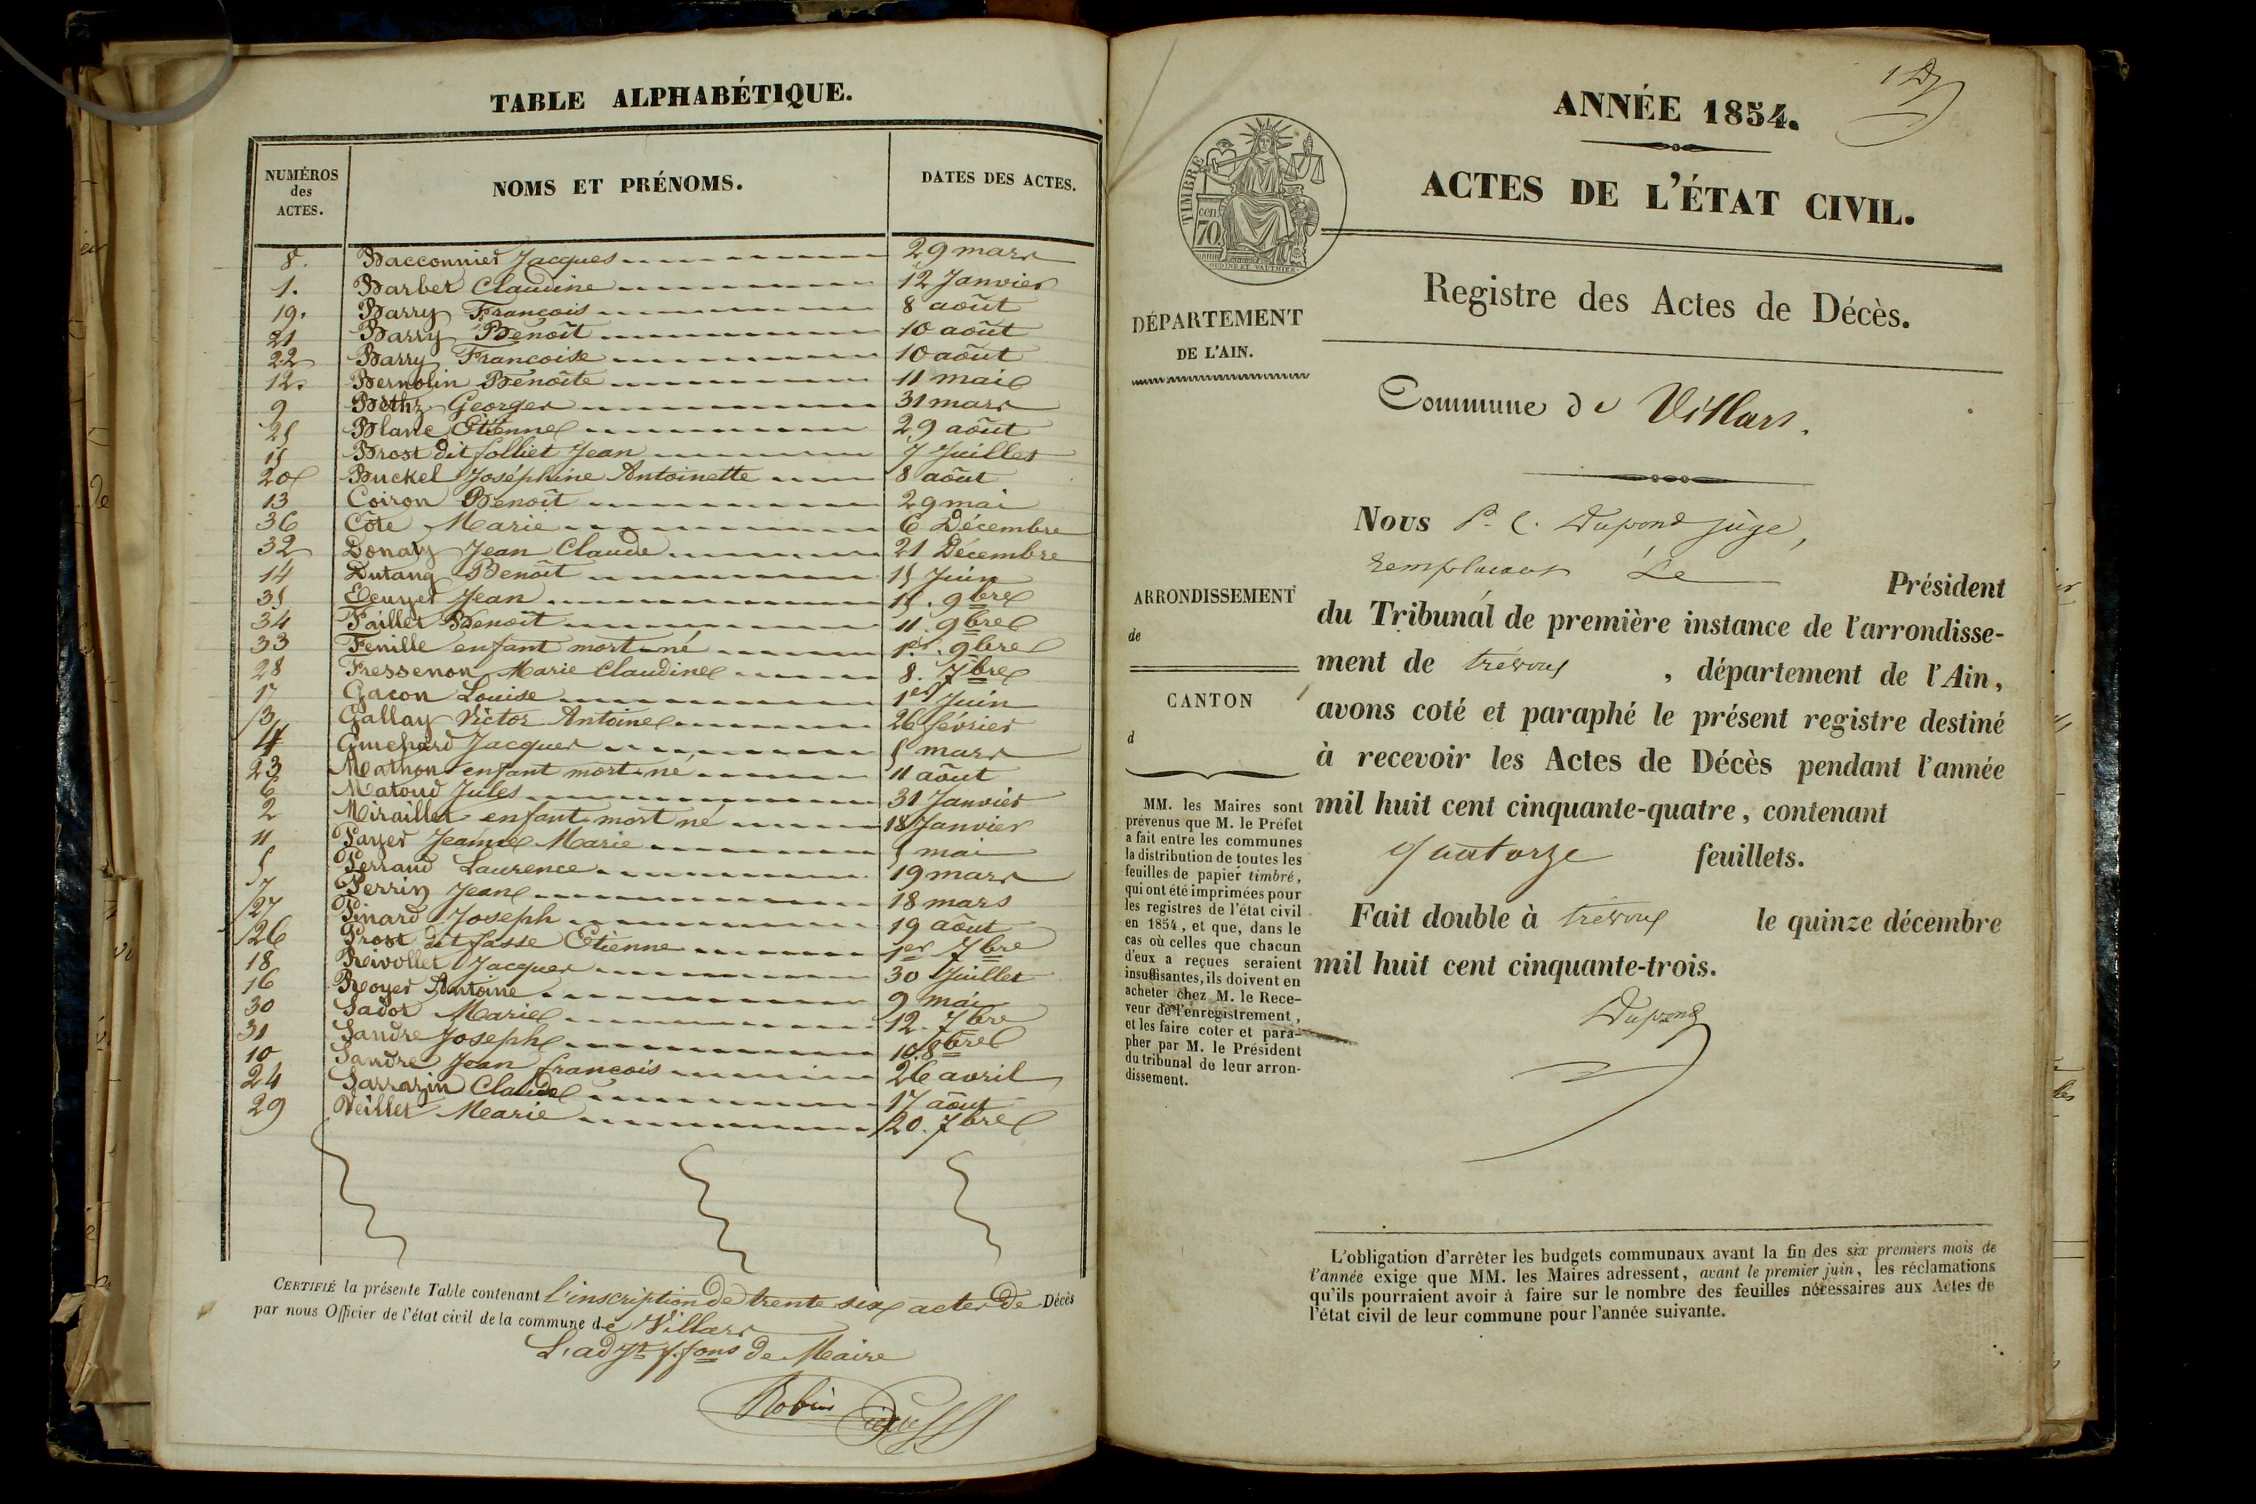 TABLE ALPHABÉTIQUE.
NUMÉROS des ACTES.
NOMS ET PRÉNOMS.
DATES DES ACTES.
8. Bacconnier Jacques 29 mars
1. Barbet Claudine 12 Janvier
19. Barry François 8 aôut
21 Barry Benoît 10 aôut
22 Barry Françoise 10 aôut
12. Bernolin Benoîte 11 mai
9 Bèthz Georges 31 mars
25 Blanc Étienne 29 aôut
15 Brost dit folliet Jean 7 Juillet
20 Buckel Joséphine Antoinette 8 aôut
13 Coiron Benoît 29 mai
36 Côte Marie 6 Décembre
32 Donay Jean Claude 21 Décembre
14 Dutang Benoît 15 Juin
35 Ecuyer Jean 15. 9bre
34 Faillet Benoît 11. 9bre
33 Fenille enfant mort-né 1er. 9bre
28 Fressenon Marie Claudine 8. 7bre
17 Gacon Louise 1er Juin
3 Gallay Victor Antoine 26 février
4 Guichard Jacques 5 mars
23 Mathon enfant mort-né 11 aôut
6 Matoud Jules 31 Janvier
2 Miraillet enfant mort né 18 Janvier
11 Payer Jeanne Marie 5 mai
5 Perraud Laurence 19 mars
7 Perrin Jean 18 mars
27 Pinard Joseph 19 aôut
26 Prost dit fasse Etienne 1er 7bre
18 Reivollet Jacques 30 Juillet
16 Royer Antoine 9 mai
30 Sador Marie 12. 7bre
31 Sandre Joseph 10. 8bre
10 Sandre Jean françois 26 avril
24 Sarrazin Claude 17 aôut
29 Veillet Marie 20. 7bre
CERTIFIÉ la présente Table contenant l'inscription de trente six actes de Décès
par nous Officier de l'état civil de la commune de Villars
L'adjt f.fons de Maire
Robin
ANNÉE 1854.
ACTES DE L'ÉTAT CIVIL.
TIMBRE
cen
70
OUDINÉ ET VAUTHIER
Registre des Actes de Décès.
DÉPARTEMENT
DE L'AIN.
Commune de Villars.
Nous P. C. Dupond juge,
remplaçant Le Président
du Tribunal de première instance de l'arrondisse-
ment de trévoux, département de l'Ain,
avons coté et paraphé le présent registre destiné
à recevoir les Actes de Décès pendant l'année
mil huit cent cinquante-quatre, contenant
quatorze feuillets.
Fait double à trévoux le quinze décembre
mil huit cent cinquante-trois.
Dupond
ARRONDISSEMENT
de
CANTON
d
MM. les Maires sont
prévenus que M. le Préfet
a fait entre les communes
la distribution de toutes les
feuilles de papier timbré,
qui ont été imprimées pour
les registres de l'état civil
en 1854, et que, dans le
cas où celles que chacun
d'eux a reçues seraient
insuffisantes, ils doivent en
acheter chez M. le Rece-
veur de l'enregistrement,
et les faire coter et para-
pher par M. le Président
du tribunal de leur arron-
dissement.
L'obligation d'arrêter les budgets communaux avant la fin des six premiers mois de
l'année exige que MM. les Maires adressent, avant le premier juin, les réclamations
qu'ils pourraient avoir à faire sur le nombre des feuilles nécessaires aux Actes de
l'état civil de leur commune pour l'année suivante.